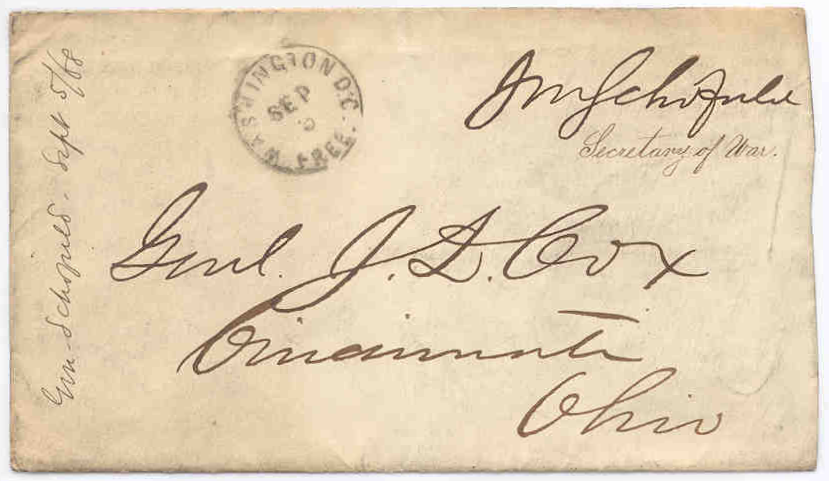 WASHINGTON D.C.
SEP
FREE.
JMSchofield
Secretary of War.
Genl. J. D. Cox
Cincinnati
Ohio
Gen. Schofield. Sept 5/68